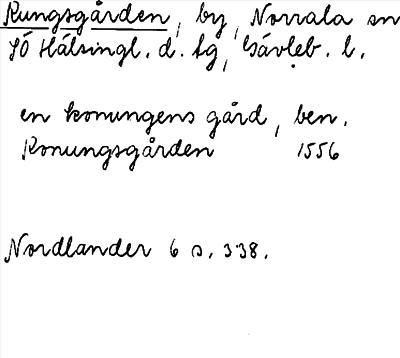 Kungsgården, by, Norrala sn
SÖ Hälsingl. d. fg, Gävleb. l.
en konungens gård, ben.
Konungsgården 1556
Nordlander 6 s. 338.